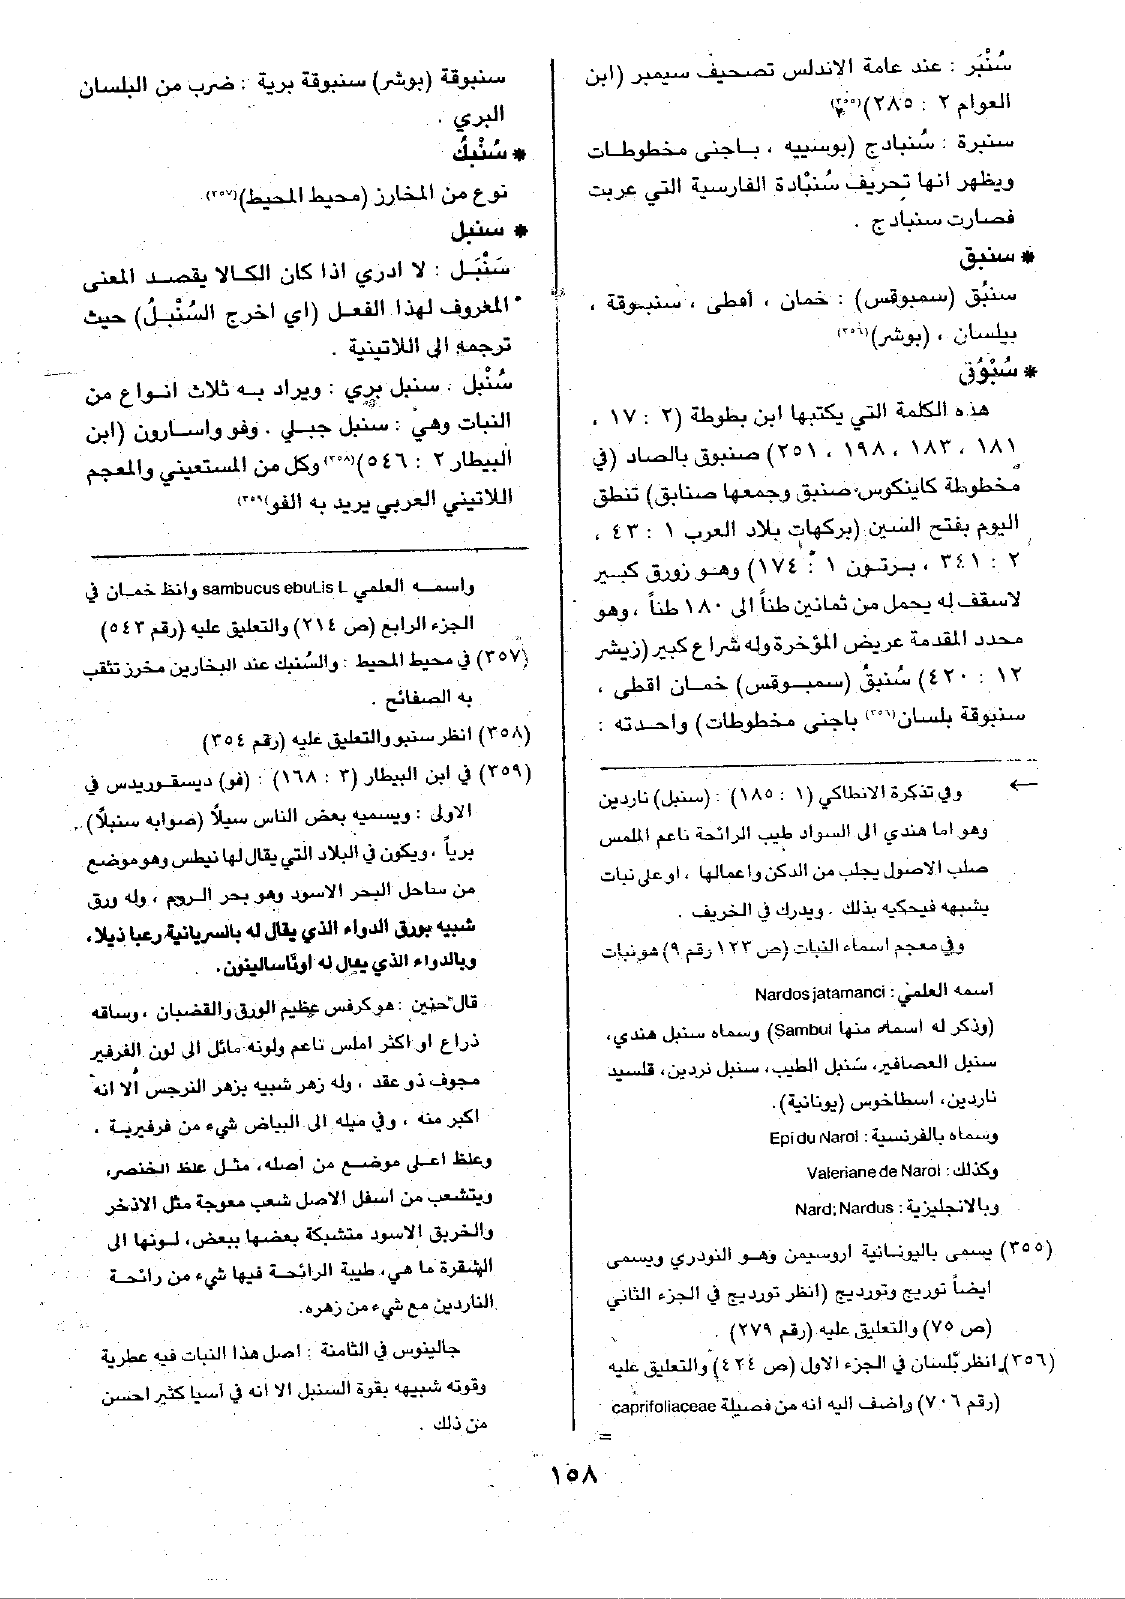 سُنْبَر : عند عامة الاندلس تصحيف سيمبر (ابن
العوام ٢ : ٢٨٥)(٣٥٥)
سنبرة : سُنبادج (بوسييه ، باجنى مخطوطات
ويظهر انها تحريف سُنبْادة الفارسية التي عربت
فصارت سنبادج .
* سنبق
سنبُق (سمبوقس) : خمان ، أفطى ، سنبوقة ،
بيلسان ، (بوشر)(٣٥٦)
* سُبْوُق
هذه الكلمة التي يكتبها ابن بطوطة (٢ : ١٧ ،
١٨١ ، ١٨٣ ، ١٩٨ ، ٢٥١) صنبوق بالصاد (في
مخطوطة كاينكوس صنبق وجمعها صنابق) تنطق
اليوم بفتح السين (بركهات بلاد العرب ١ : ٤٣ ،
٢ : ٣٤١ ، برتون ١ : ١٧٤) وهو زورق كبير
لاسقف له يحمل من ثمانين طناً الى ١٨٠ طناً ، وهو
محدد المقدمة عريض المؤخرة وله شراع كبير (زيشر
١٢ : ٤٢٠) سُنبقُ (سمبوقس) خمان اقطى ،
سنبوقة بلسان(٣٥٦) باجنى مخطوطات) واحدته :
← وفي تذكرة الانطاكي (١ : ١٨٥) : (سنبل) ناردين
وهو اما هندي الى السواد طيب الرائحة ناعم الملمس
صلب الاصول يجلب من الدكن واعمالها ، او على نبات
يشبهه فيحكيه بذلك . ويدرك في الخريف .
وفي معجم اسماء النبات (ص ١٢٣ رقم ٩) هو نبات
اسمه العلمي : Nardos jatamanci
(وذكر له اسماء منها Sambul) وسماه سنبل هندي،
سنبل العصافير، سُنبل الطيب، سنبل نردين، قلسيد
ناردين، اسطاخوس (يونانية).
وسماه بالفرنسية : Epi du Narol
وكذلك : Valeriane de Narol
وبالانجليزية : Nard; Nardus
(٣٥٥) يسمى باليونانية اروسيمن وهو النودري ويسمى
ايضاً توريج وتورديج (انظر تورديج في الجزء الثاني
(ص ٧٥) والتعليق عليه (رقم ٢٧٩) .
(٣٥٦) انظر بَلسان في الجزء الاول (ص ٤٢٤) والتعليق عليه
(رقم ٧٠٦) واضف اليه انه من فصيلة caprifoliaceae
=
سنبوقة (بوشر) سنبوقة برية : ضرب من البلسان
البري .
* سُنْبكُ
نوع من المخارز (محيط المحيط)(٣٥٧).
* سنبل
سَنْبَل : لا ادري اذا كان الكالا يقصد المعنى
المعروف لهذا الفعل (اي اخرج السُنْبلُ) حيث
ترجمه الى اللاتينية .
سُنْبل . سنبل بري : ويراد به ثلاث انواع من
النبات وهي : سنبل جبلي . وفو واسارون (ابن
البيطار ٢ : ٥٤٦)(٣٥٨) وكل من المستعيني والمعجم
اللاتيني العربي يريد به الفو(٣٥٩)
واسمه العلمي sambucus ebuLis L وانظ خمان في
الجزء الرابع (ص ٢١٤) والتعليق عليه (رقم ٥٤٣)
(٣٥٧) في محيط المحيط : والسُنبك عند البخارين مخرز تثقب
به الصفائح .
(٣٥٨) انظر سنبو والتعليق عليه (رقم ٣٥٤)
(٣٥٩) في ابن البيطار (٣ : ١٦٨) : (فو) ديسقوريدس في
الاولى : ويسميه بعض الناس سيلًا (صوابه سنبلًا)
برياً ، ويكون في البلاد التي يقال لها نيطس وهو موضع
من ساحل البحر الاسود وهو بحر الروم ، وله ورق
شبيه بورق الدواء الذي يقال له بالسريانية رعبا ذيلا،
وبالدواء الذي يقال له اونّاسالينون.
قال حنين : هو كرفس عظيم الورق والقضبان ، وساقه
ذراع او اكثر املس ناعم ولونه مائل الى لون الفرفير
مجوف ذو عقد ، وله زهر شبيه بزهر النرجس ألا انه
اكبر منه ، وفي ميله الى البياض شيء من فرفيرية ،
وغلظ اعلى موضع من اصله، مثل غلظ الخنصر،
ويتشعب من اسفل الاصل شعب معوجة مثل الاذخر
والخريق الاسود متشبكة بعضها ببعض، لونها الى
الشقرة ما هي، طيبة الرائحة فيها شيء من رائحة
الناردين مع شيء من زهره.
جالينوس في الثامنة : اصل هذا النبات فيه عطرية
وقوته شبيهه بقوة السنبل الا انه في آسيا كثير احسن
من ذلك .
١٥٨